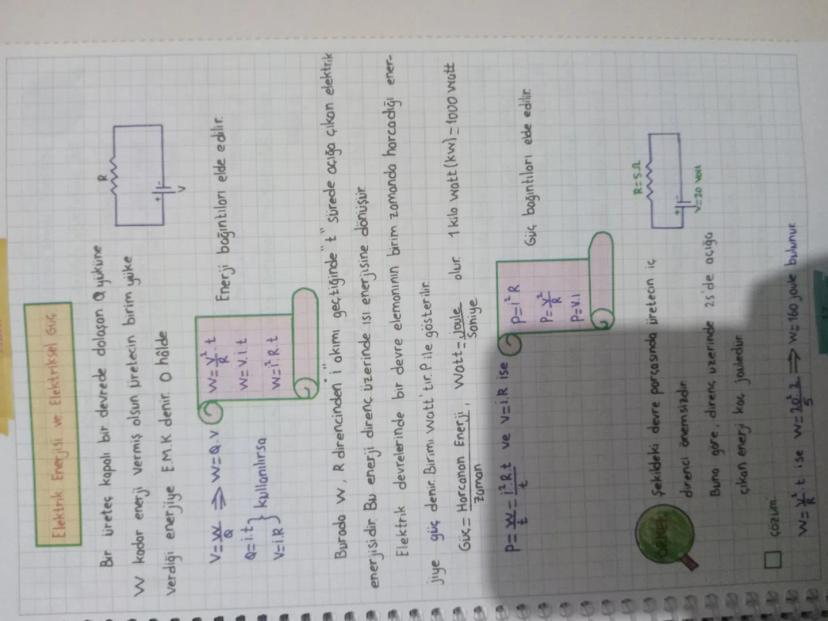 Elektrik Enerjisi ve Elektriksel Güç
Bir üreteç kapalı bir devrede dolaşan Q yüküne
W kadar enerji vermiş olsun üretecin birim yüke
verdiği enerjiye E.M.K denir. O hâlde
R
+ -
V
V=W/Q ⇒ W=Q.V
Q=i.t
V=i.R } kullanılırsa
W=V²/R t
W=V.i.t
W=i².R.t
Enerji bağıntıları elde edilir.
Burada W, R direncinden "i" akımı geçtiğinde "t" sürede açığa çıkan elektrik
enerjisidir. Bu enerji direnç üzerinde ısı enerjisine dönüşür.
Elektrik devrelerinde bir devre elemanının birim zamanda harcadığı ener-
jiye güç denir. Birimi Watt'tır. P ile gösterilir.
Güç=Harcanan Enerji/zaman, Watt=Joule/Saniye olur. 1 kilo watt (kw)=1000 watt
P=W/t=i²R.t/t ve V=i.R ise
P=i²R
P=V²/R
P=V.i
Güç bağıntıları elde edilir.
ÖRNEK
Şekildeki devre parçasında üretecin iç
direnci önemsizdir.
Buna göre, direnç üzerinde 2s'de açığa
çıkan enerji kaç jouledur.
R=5Ω
+ -
V=20 Volt
çözüm
W=V²/R t ise W=20².2/5 ⇒ W=160 joule bulunur.